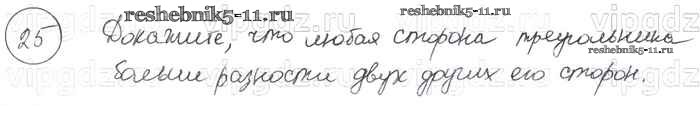 reshebnik5-11.ru
reshebnik5-11.ru
25 Докажите, что любая сторона треугольника
reshebnik5-11.ru
больше разности двух других его сторон.
vipgdz